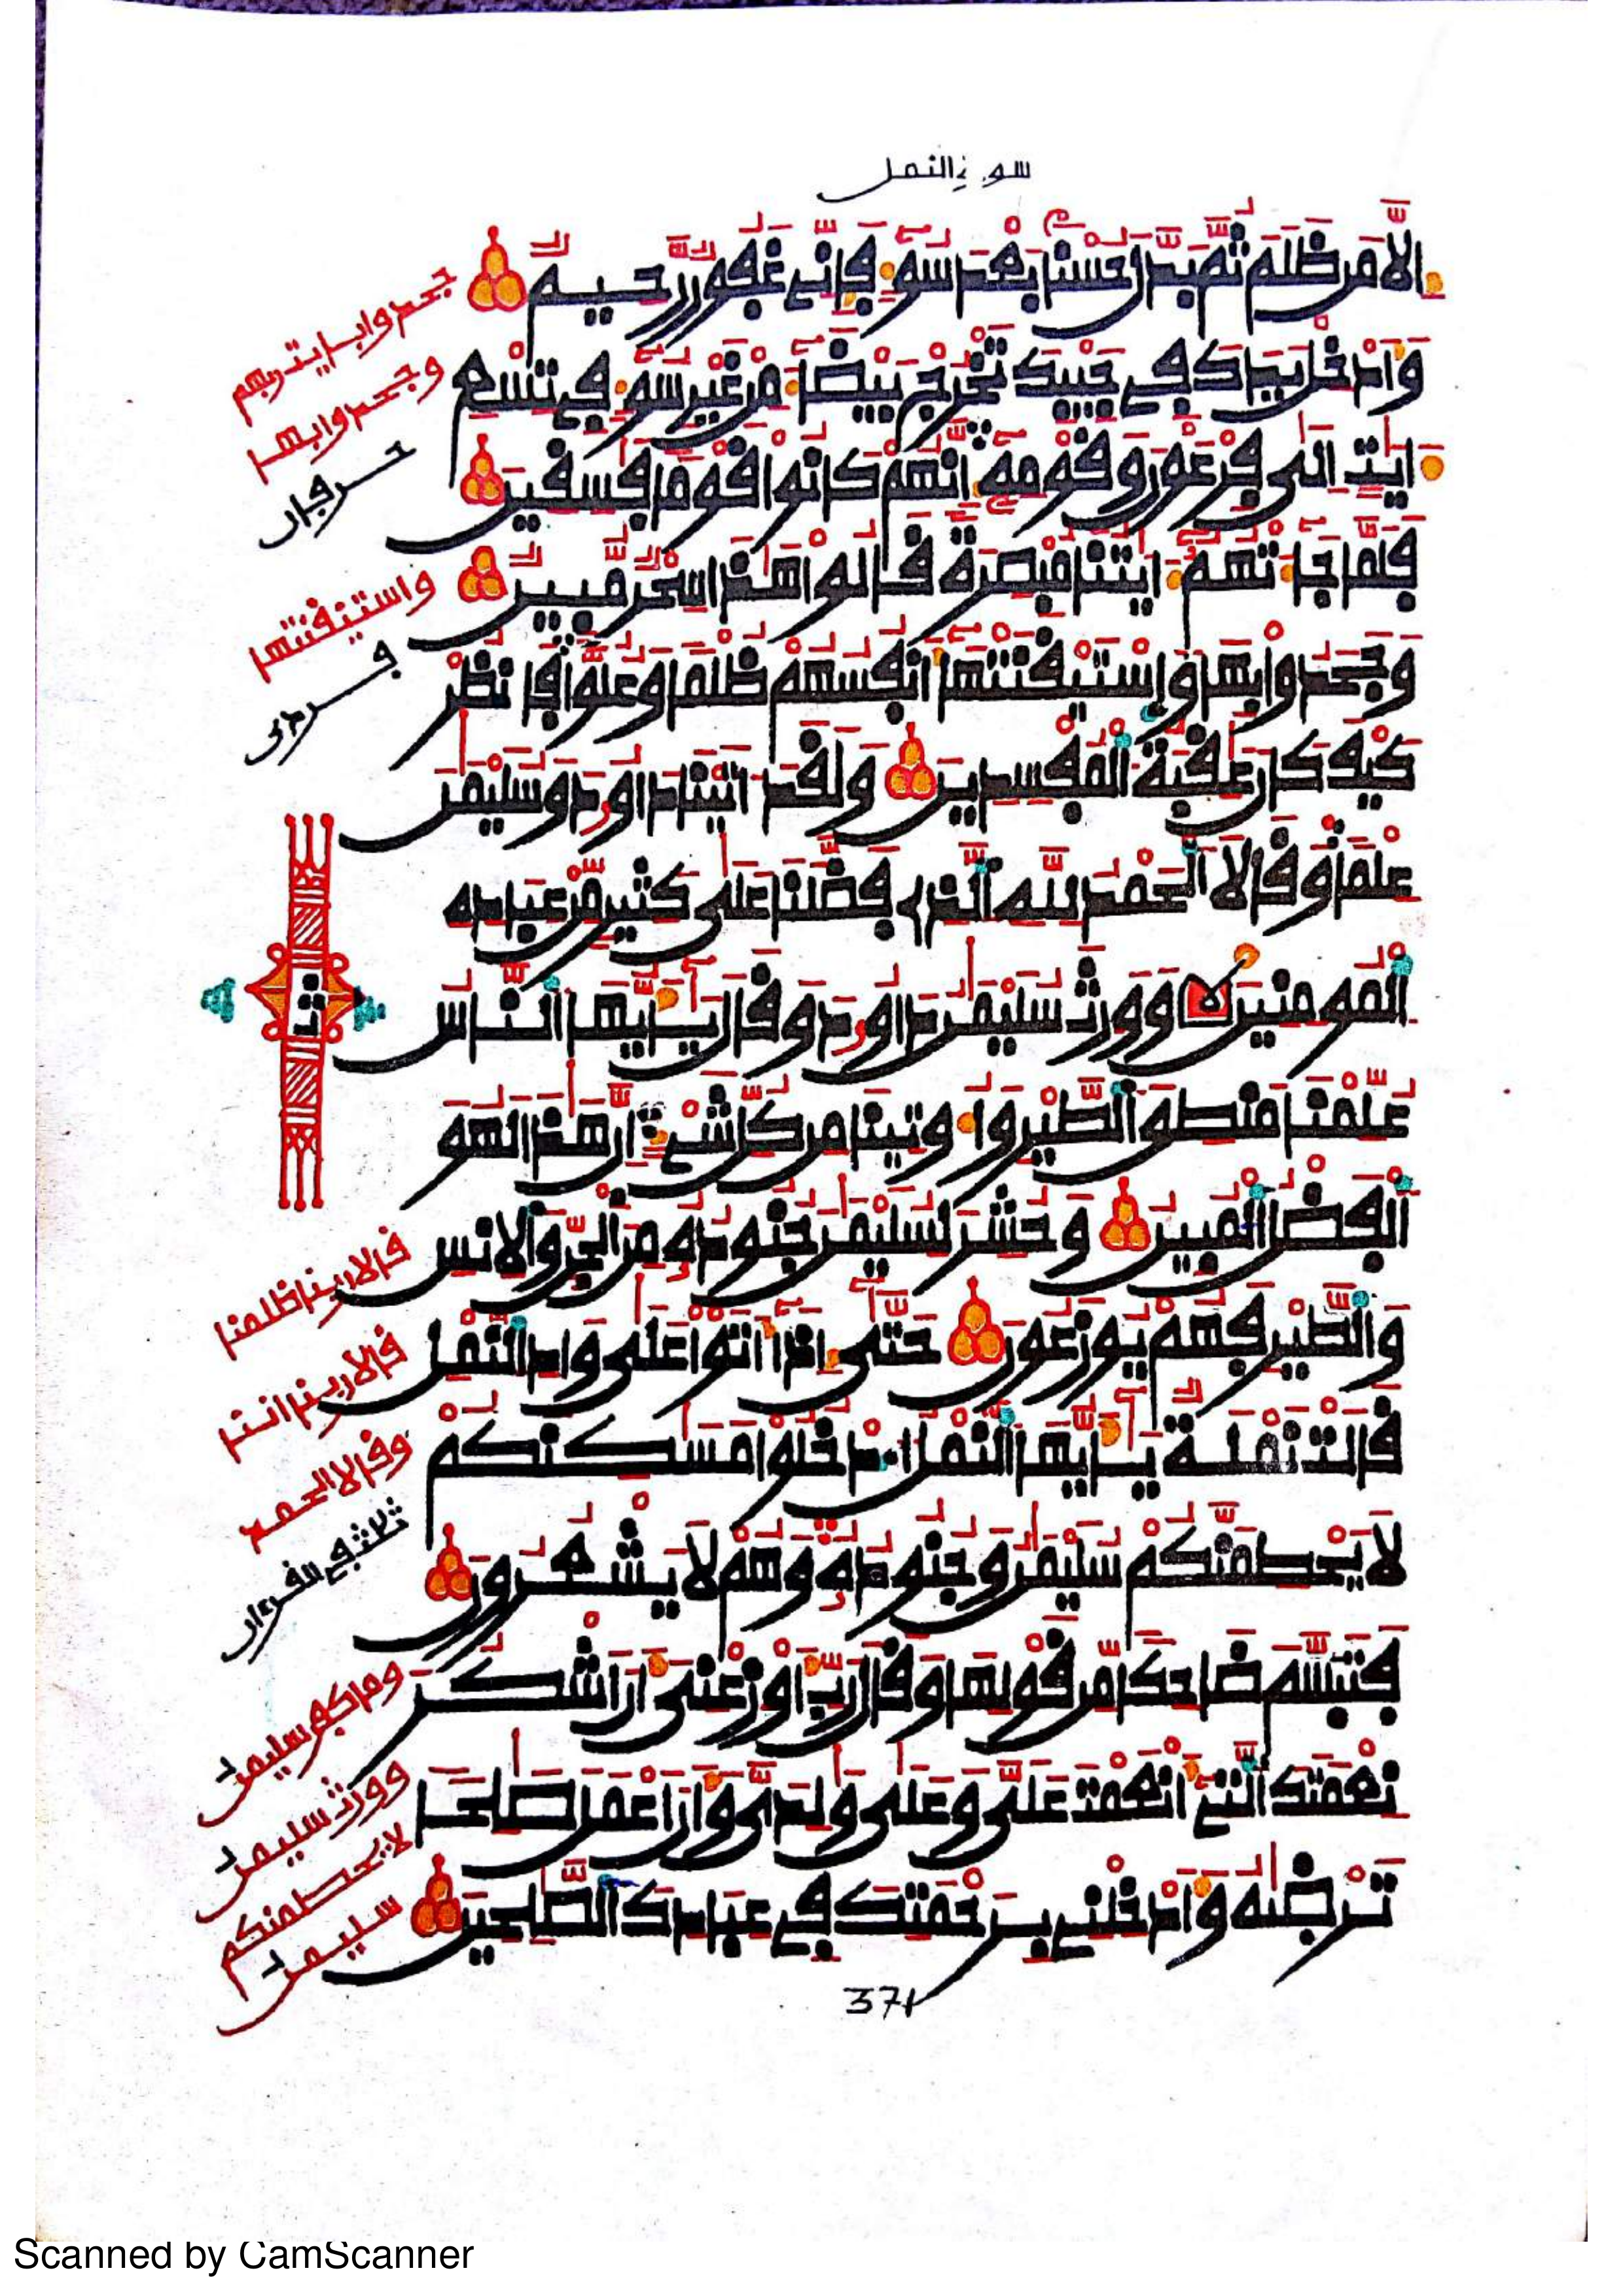 سورة النمل
الا من ظلم ثم بدل حسنا بعد سوء فإني غفور رحيم
وأدخل يدك في جيبك تخرج بيضاء من غير سوء في تسع
ءايت الى فرعون وقومه انهم كانوا قوما فسقين
فلما جاءتهم ءايتنا مبصرة قالوا هذا سحر مبين
وجحدوا بها واستيقنتها انفسهم ظلما وعلوا فانظر
كيف كان عقبة المفسدين ولقد ءاتينا داوود وسليمن
علما وقالا الحمد لله الذي فضلنا على كثير من عباده
المومنين وورث سليمن داوود وقال يأيها الناس
علمنا منطق الطير وأوتينا من كل شيء ان هذا لهو
الفضل المبين وحشر لسليمن جنوده من الجن والانس
والطير فهم يوزعون حتى اذا أتوا على واد النمل
قالت نملة يأيها النمل ادخلوا مسكنكم
لا يحطمنكم سليمن وجنوده وهم لا يشعرون
فتبسم ضاحكا من قولها وقال رب أوزعني أن أشكر
نعمتك التي أنعمت علي وعلى ولدي وأن أعمل صلحا
ترضيه وأدخلني برحمتك في عبادك الصلحين
جحدوا بايت ربهم
وجحدوا بها
حرفان
واستيقنتها
فردى
قف
قالا ربنا ظلمنا
وقالا الحمد
وما كفر سليمن
وورث سليمن
لا يحطمنكم
سليمن
371
Scanned by CamScanner